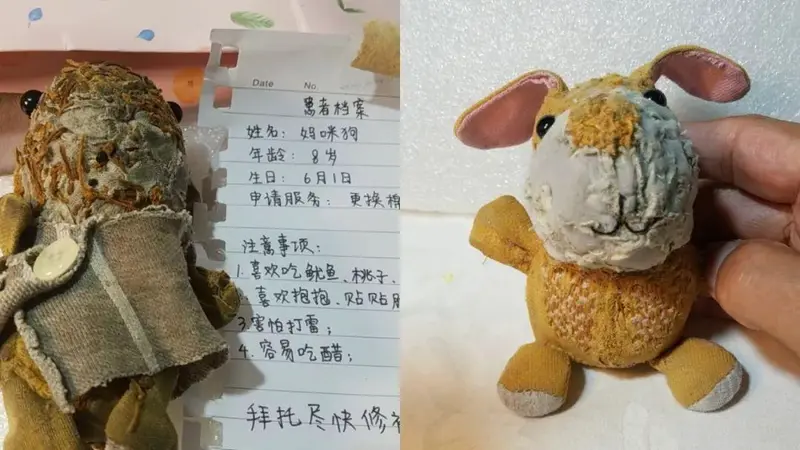 Date No
患者档案
姓名: 妈咪狗
年龄: 8岁
生日: 6月1日
申请服务: 更换棉
注意事项:
1.喜欢吃鱿鱼、桃子、
喜欢抱抱、贴贴
3.害怕打雷;
4.容易吃醋;
拜托尽快修